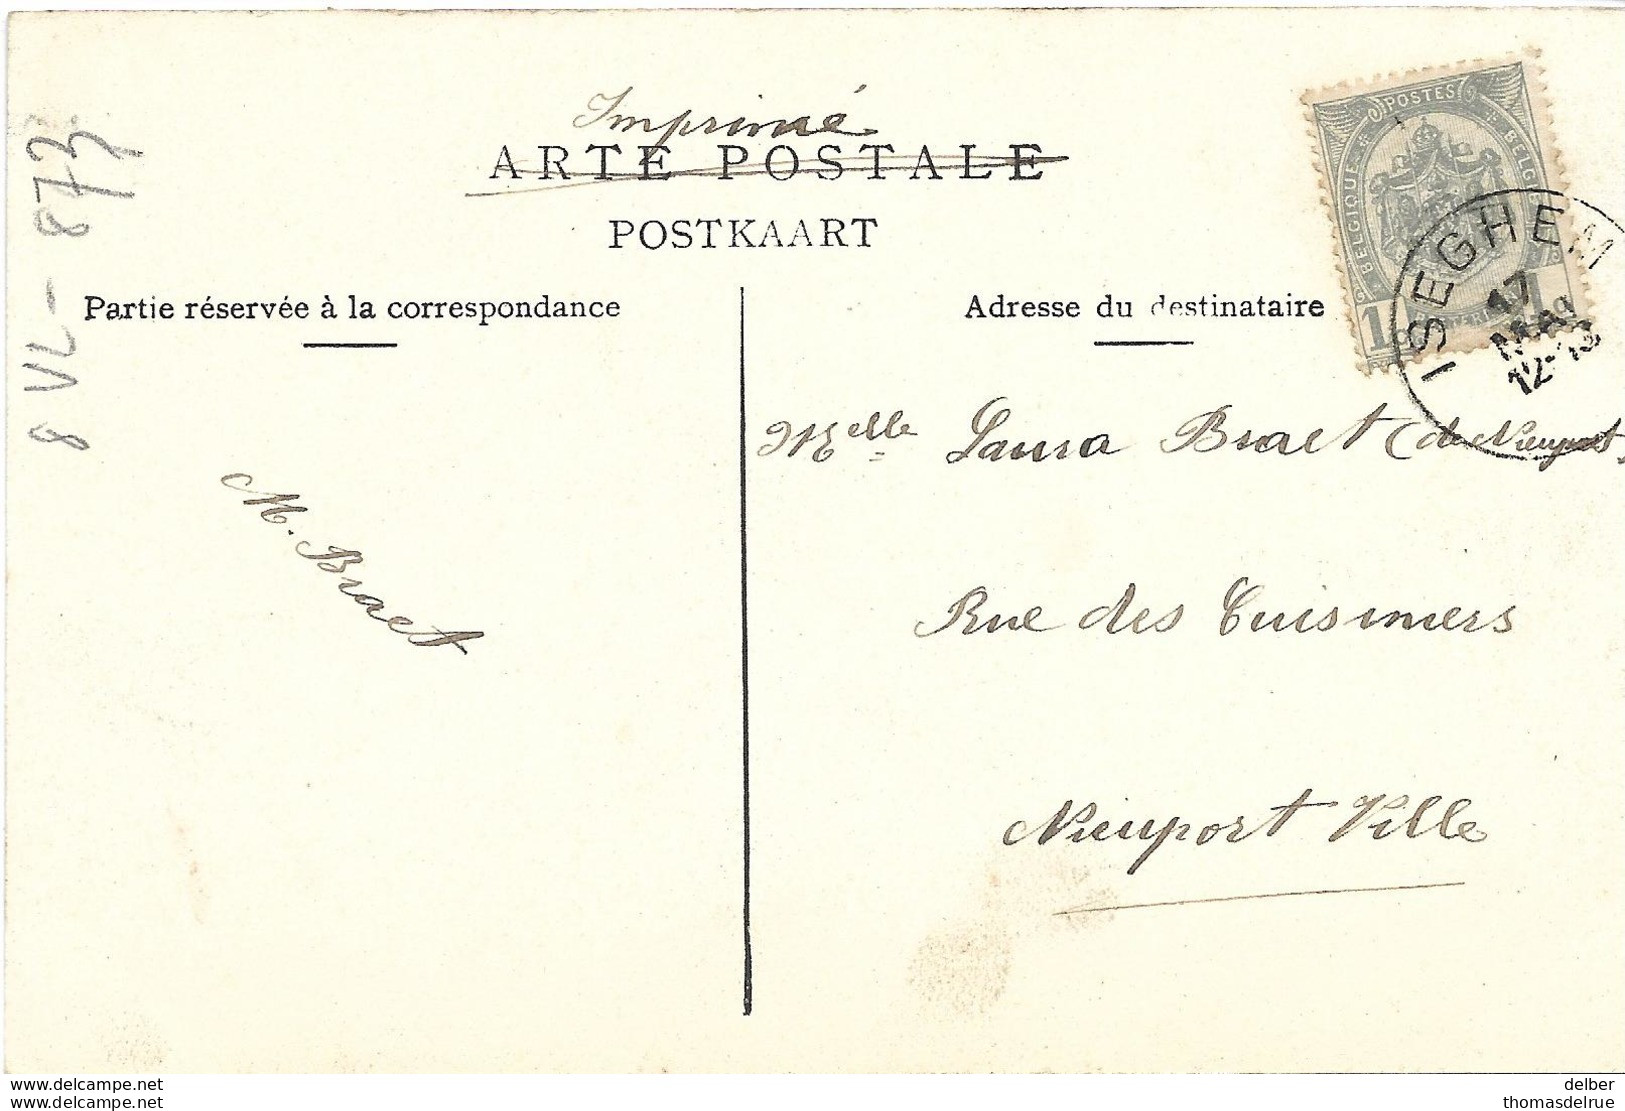 Imprimé
ARTE POSTALE
POSTKAART
Partie réservée à la correspondance
Adresse du destinataire
POSTES
BELGIQUE
BELG
1
ISEGHEM
17
MAI
12-13
8 VL - 873
Melle Laura Braet (de Nieuport
M. Braet
Rue des Cuisiniers
Nieuport Ville
www.delcampe.net
delber
www.delcampe.net
thomasdelrue